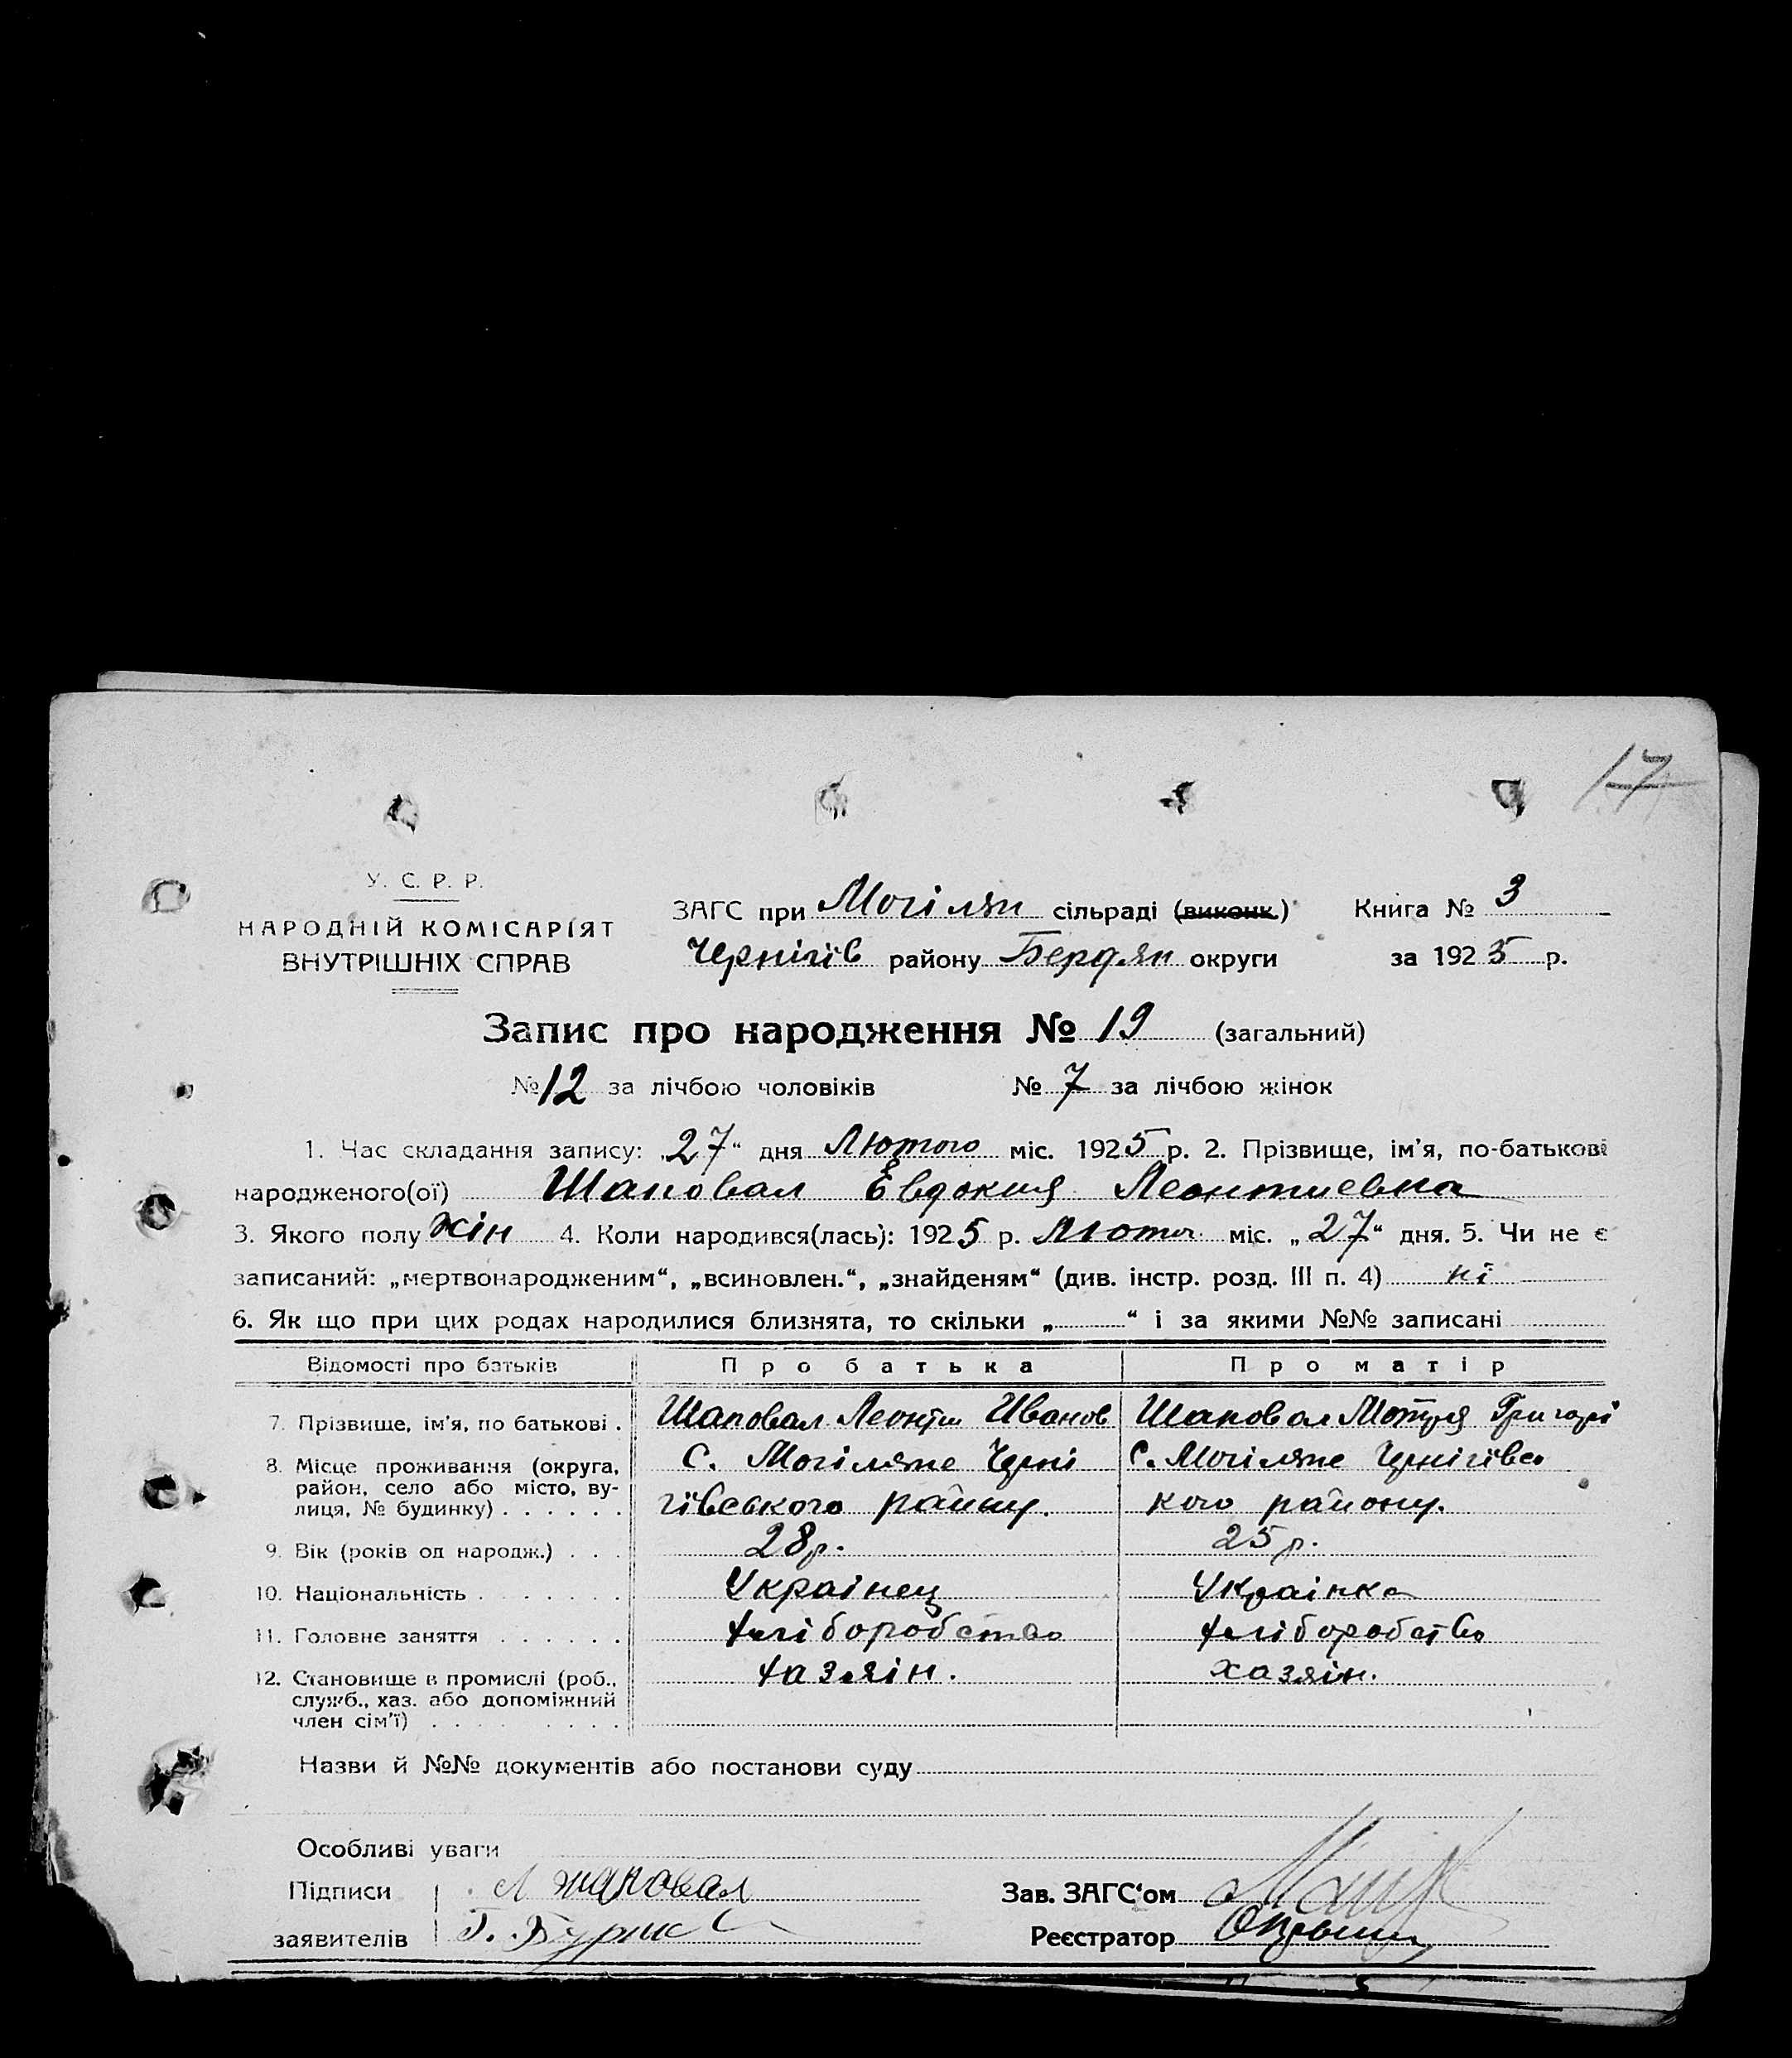 17
У. С. Р. Р.
НАРОДНІЙ КОМІСАРІЯТ
ВНУТРІШНІХ СПРАВ
ЗАГС при Могілян сільраді (виконк.)
Чернігів району Бердян округи
Книга № 3
за 1925 р.
Запис про народження № 19 (загальний)
№ 12 за лічбою чоловіків № 7 за лічбою жінок
1. Час складання запису: „27“ дня Лютого міс. 1925 р. 2. Прізвище, ім'я, по-батькові
народженого(ої) Шаповал Евдокия Леонтиевна
3. Якого полу жін 4. Коли народився(лась): 1925 р. Лютог міс. „27“ дня. 5. Чи не є
записаний: „мертвонародженим“, „всиновлен.“, „знайденям“ (див. інстр. розд. III п. 4) ні
6. Як що при цих родах народилися близнята, то скільки „ “ і за якими №№ записані
Відомості про батьків Про батька Про матір
7. Прізвище, ім'я, по батькові . Шаповал Леонтии Иванов Шаповал Мотря Григорі
8. Місце проживання (округа, район, село або місто, вулиця, № будинку) . . . . . .
с. Могіляне Черні
гівського району.
с. Могіляне Чернігівсь
кого району.
9. Вік (років од народж.) . . . 28 р. 25 р.
10. Національність . . . . . . . Украінец Украінка
11. Головне заняття . . . . . . хліборобство хліборобство
12. Становище в промислі (роб., служб., хаз. або допоміжний член сім'ї) . . . . . . . . . хазяін. хазяін.
Назви й №№ документів або постанови суду
Особливі уваги
Підписи Л Шаповал Зав. ЗАГС'ом
заявителів Г. Реєстратор